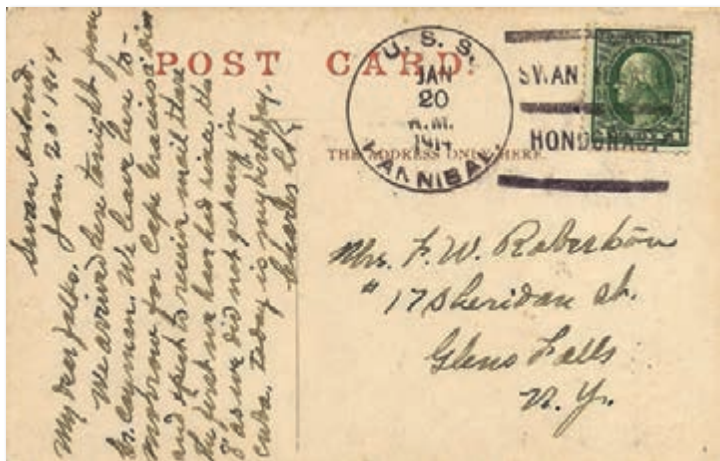 POST CARD.
THE ADDRESS ONLY HERE.
U.S.S.
JAN
20
A.M.
1914
HANNIBAL
SWAN
HONDURAS
Swan Island.
Jan. 20' 1914
My dear folks.
We arrived here tonight from
Gr. Cayman. We leave here to-
morrow for Cape Gracias a Dios
and expect to receive mail there
the first we have had since the
8 as we did not get any in
Cuba. Today is my birthday.
Charles
Mrs. F. W. Robertson
# 17 Sheridan St.
Glens Falls
N. Y.